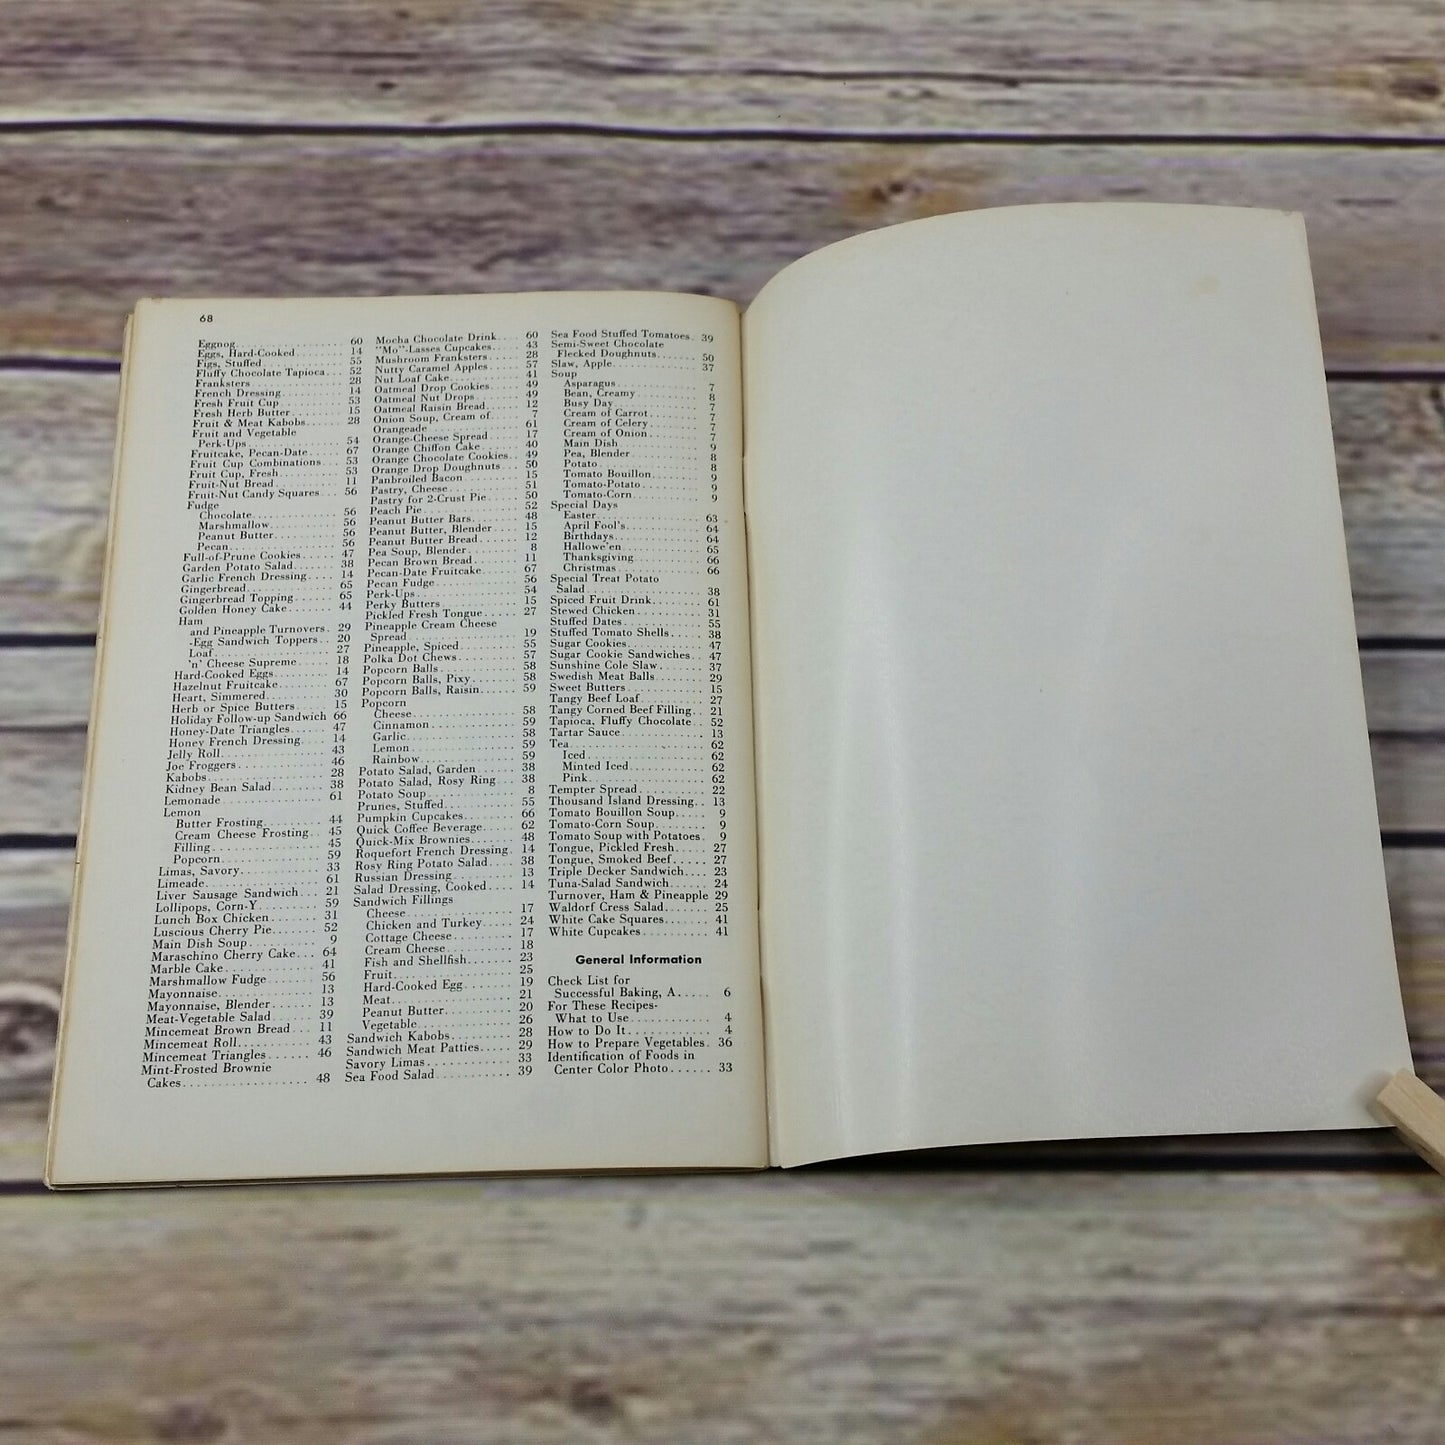 68
Eggnog 60
Eggs, Hard-Cooked 14
Figs, Stuffed 55
Fluffy Chocolate Tapioca 52
Franksters 28
French Dressing 14
Fresh Fruit Cup 53
Fresh Herb Butter 15
Fruit & Meat Kabobs 28
Fruit and Vegetable
Perk-Ups 54
Fruitcake, Pecan-Date 67
Fruit Cup Combinations 53
Fruit Cup, Fresh 53
Fruit-Nut Bread 11
Fruit-Nut Candy Squares 56
Fudge
Chocolate 56
Marshmallow 56
Peanut Butter 56
Pecan 56
Full-of-Prune Cookies 47
Garden Potato Salad 38
Garlic French Dressing 14
Gingerbread 65
Gingerbread Topping 65
Golden Honey Cake 44
Ham
and Pineapple Turnovers 29
-Egg Sandwich Toppers 20
Loaf 27
'n' Cheese Supreme 18
Hard-Cooked Eggs 14
Hazelnut Fruitcake 67
Heart, Simmered 30
Herb or Spice Butters 15
Holiday Follow-up Sandwich 66
Honey-Date Triangles 47
Honey French Dressing 14
Jelly Roll 43
Joe Froggers 46
Kabobs 28
Kidney Bean Salad 38
Lemonade 61
Lemon
Butter Frosting 44
Cream Cheese Frosting 45
Filling 45
Popcorn 59
Limas, Savory 33
Limeade 61
Liver Sausage Sandwich 21
Lollipops, Corn-Y 59
Lunch Box Chicken 31
Luscious Cherry Pie 52
Main Dish Soup 9
Maraschino Cherry Cake 64
Marble Cake 41
Marshmallow Fudge 56
Mayonnaise 13
Mayonnaise, Blender 13
Meat-Vegetable Salad 39
Mincemeat Brown Bread 11
Mincemeat Roll 43
Mincemeat Triangles 46
Mint-Frosted Brownie
Cakes 48
Mocha Chocolate Drink 60
"Mo"-Lasses Cupcakes 43
Mushroom Franksters 28
Nutty Caramel Apples 57
Nut Loaf Cake 41
Oatmeal Drop Cookies 49
Oatmeal Nut Drops 49
Oatmeal Raisin Bread 12
Onion Soup, Cream of 7
Orangeade 61
Orange-Cheese Spread 17
Orange Chiffon Cake 40
Orange Chocolate Cookies 49
Orange Drop Doughnuts 50
Panbroiled Bacon 15
Pastry, Cheese 51
Pastry for 2-Crust Pie 50
Peach Pie 52
Peanut Butter Bars 48
Peanut Butter, Blender 15
Peanut Butter Bread 12
Pea Soup, Blender 8
Pecan Brown Bread 11
Pecan-Date Fruitcake 67
Pecan Fudge 56
Perk-Ups 54
Perky Butters 15
Pickled Fresh Tongue 27
Pineapple Cream Cheese
Spread 19
Pineapple, Spiced 55
Polka Dot Chews 57
Popcorn Balls 58
Popcorn Balls, Pixy 58
Popcorn Balls, Raisin 59
Popcorn
Cheese 58
Cinnamon 59
Garlic 58
Lemon 59
Rainbow 59
Potato Salad, Garden 38
Potato Salad, Rosy Ring 38
Potato Soup 8
Prunes, Stuffed 55
Pumpkin Cupcakes 66
Quick Coffee Beverage 62
Quick-Mix Brownies 48
Roquefort French Dressing 14
Rosy Ring Potato Salad 38
Russian Dressing 13
Salad Dressing, Cooked 14
Sandwich Fillings
Cheese 17
Chicken and Turkey 24
Cottage Cheese 17
Cream Cheese 18
Fish and Shellfish 23
Fruit 25
Hard-Cooked Egg 19
Meat 21
Peanut Butter 20
Vegetable 26
Sandwich Kabobs 28
Sandwich Meat Patties 29
Savory Limas 33
Sea Food Salad 39
Sea Food Stuffed Tomatoes 39
Semi-Sweet Chocolate
Flecked Doughnuts 50
Slaw, Apple 37
Soup
Asparagus 7
Bean, Creamy 8
Busy Day 7
Cream of Carrot 7
Cream of Celery 7
Cream of Onion 7
Main Dish 9
Pea, Blender 8
Potato 8
Tomato Bouillon 9
Tomato-Potato 9
Tomato-Corn 9
Special Days
Easter 63
April Fool's 64
Birthdays 64
Hallowe'en 65
Thanksgiving 66
Christmas 66
Special Treat Potato
Salad 38
Spiced Fruit Drink 61
Stewed Chicken 31
Stuffed Dates 55
Stuffed Tomato Shells 38
Sugar Cookies 47
Sugar Cookie Sandwiches 47
Sunshine Cole Slaw 37
Swedish Meat Balls 29
Sweet Butters 15
Tangy Beef Loaf 27
Tangy Corned Beef Filling 21
Tapioca, Fluffy Chocolate 52
Tartar Sauce 13
Tea 62
Iced 62
Minted Iced 62
Pink 62
Tempter Spread 22
Thousand Island Dressing 13
Tomato Bouillon Soup 9
Tomato-Corn Soup 9
Tomato Soup with Potatoes 9
Tongue, Pickled Fresh 27
Tongue, Smoked Beef 27
Triple Decker Sandwich 23
Tuna-Salad Sandwich 24
Turnover, Ham & Pineapple 29
Waldorf Cress Salad 25
White Cake Squares 41
White Cupcakes 41
General Information
Check List for
Successful Baking, A 6
For These Recipes-
What to Use 4
How to Do It 4
How to Prepare Vegetables 36
Identification of Foods in
Center Color Photo 33